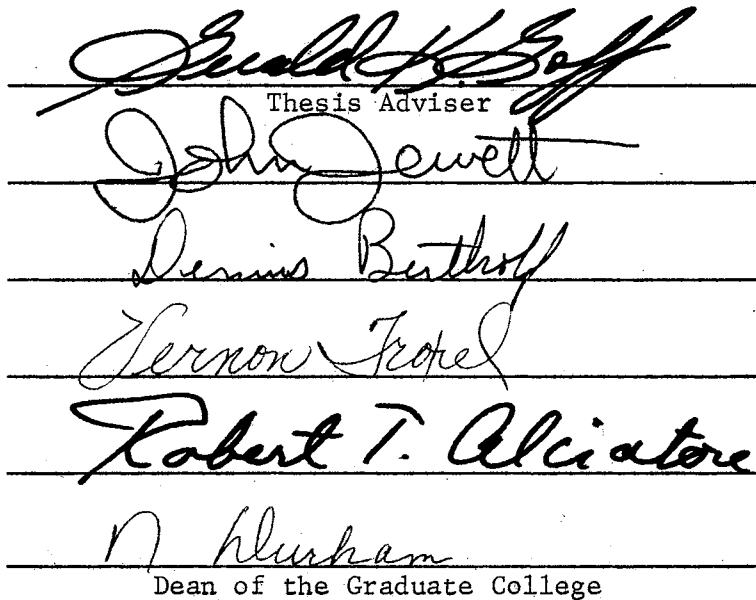 Gerald K. Goff
Thesis Adviser
John Jewett
Dennis Bertholf
Vernon Troxel
Robert T. Alciatore
N Durham
Dean of the Graduate College